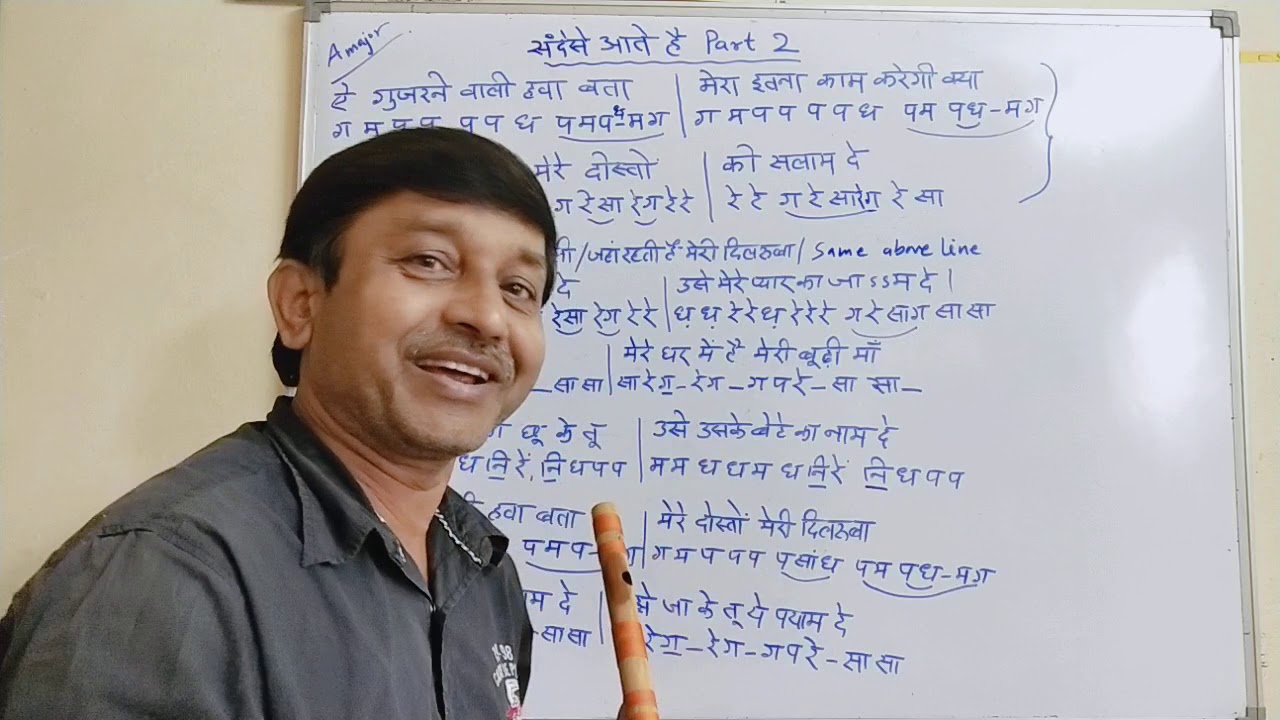 A major
संदेसे आते है Part 2
ऐ गुजरने वाली हवा बता | मेरा इतना काम करेगी क्या
ग म प प प प ध पमप-मग | ग म प प प प ध पम पध-मग
मेरे दोस्तों | को सलाम दे
ग रेसा रेग रेरे | रे रे ग रे सारेग रे सा
/जहां रहती है मेरी दिलरुबा/ Same above line
दे | उसे मेरे प्यार का जा ऽऽम दे |
रेसा रेग रेरे | ध़ ध़ रे रे ध़ रे रे रे ग रे साग सा सा
| मेरे घर में है मेरी बूढ़ी माँ
-सासा | सा रे ग॒- रेग - ग प रे - सा सा-
छू के तू | उसे उसके बेटे का नाम दे
ध नि॒ रें, नि॒ ध प प | म म ध ध म ध नि॒ रें नि॒ ध प प
हवा बता | मेरे दोस्तों मेरी दिलरुबा
पमप- | ग म प प प पसांध पम पध-मग
दे | जा के तू ये पयाम दे
-सासा रेग॒ - रेग - ग प रे - सा सा